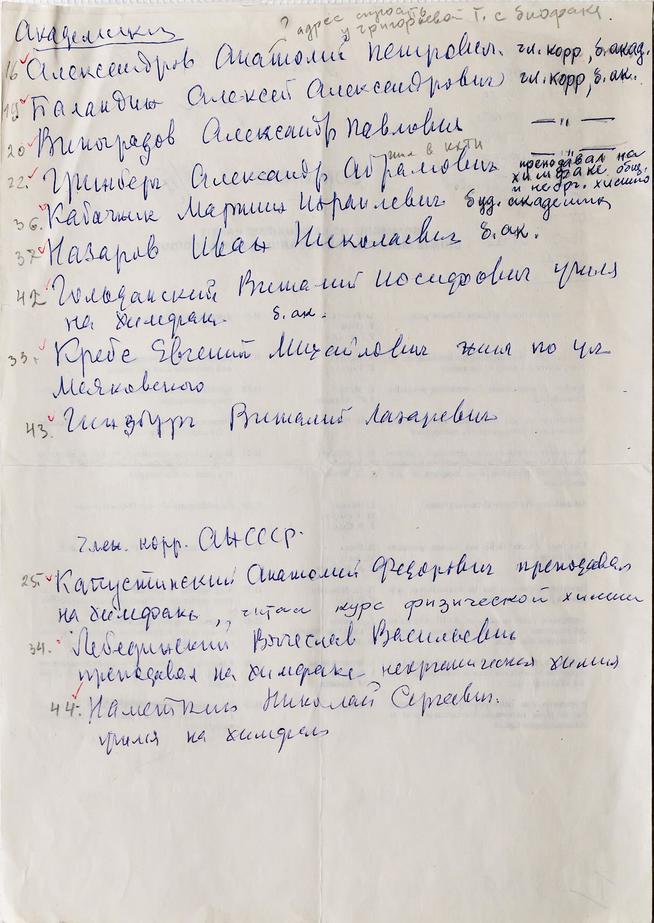 ? адрес спросить
у Григорьевой Т. с биофака.
Академики
16 Александров Анатолий Петрович. чл. корр, б. акад.
19 Баландин Алексей Александрович чл. корр, б. ак.
20 Виноградов Александр Павлович — " —
жил в ККТИ
22. Гринберг Александр Абрамович преподавал на
химфаке общ.
и неорг. химию
36. Кабачник Мартин Израилевич буд. академик
37 Назаров Иван Николаевич б. ак.
42 Гольданский Виталий Иосифович учился
на химфаке. б. ак.
33. Кребс Евгений Михайлович жил по ул
Маяковского
43. Гинзбург Виталий Лазаревич
Член. корр. АН СССР.
25. Капустинский Анатолий Федорович преподавал
на химфаке, читал курс физической химии
34. Лебединский Вячеслав Васильевич
преподавал на химфаке неорганическая химия
44. Наметкин Николай Сергеевич.
учился на химфаке